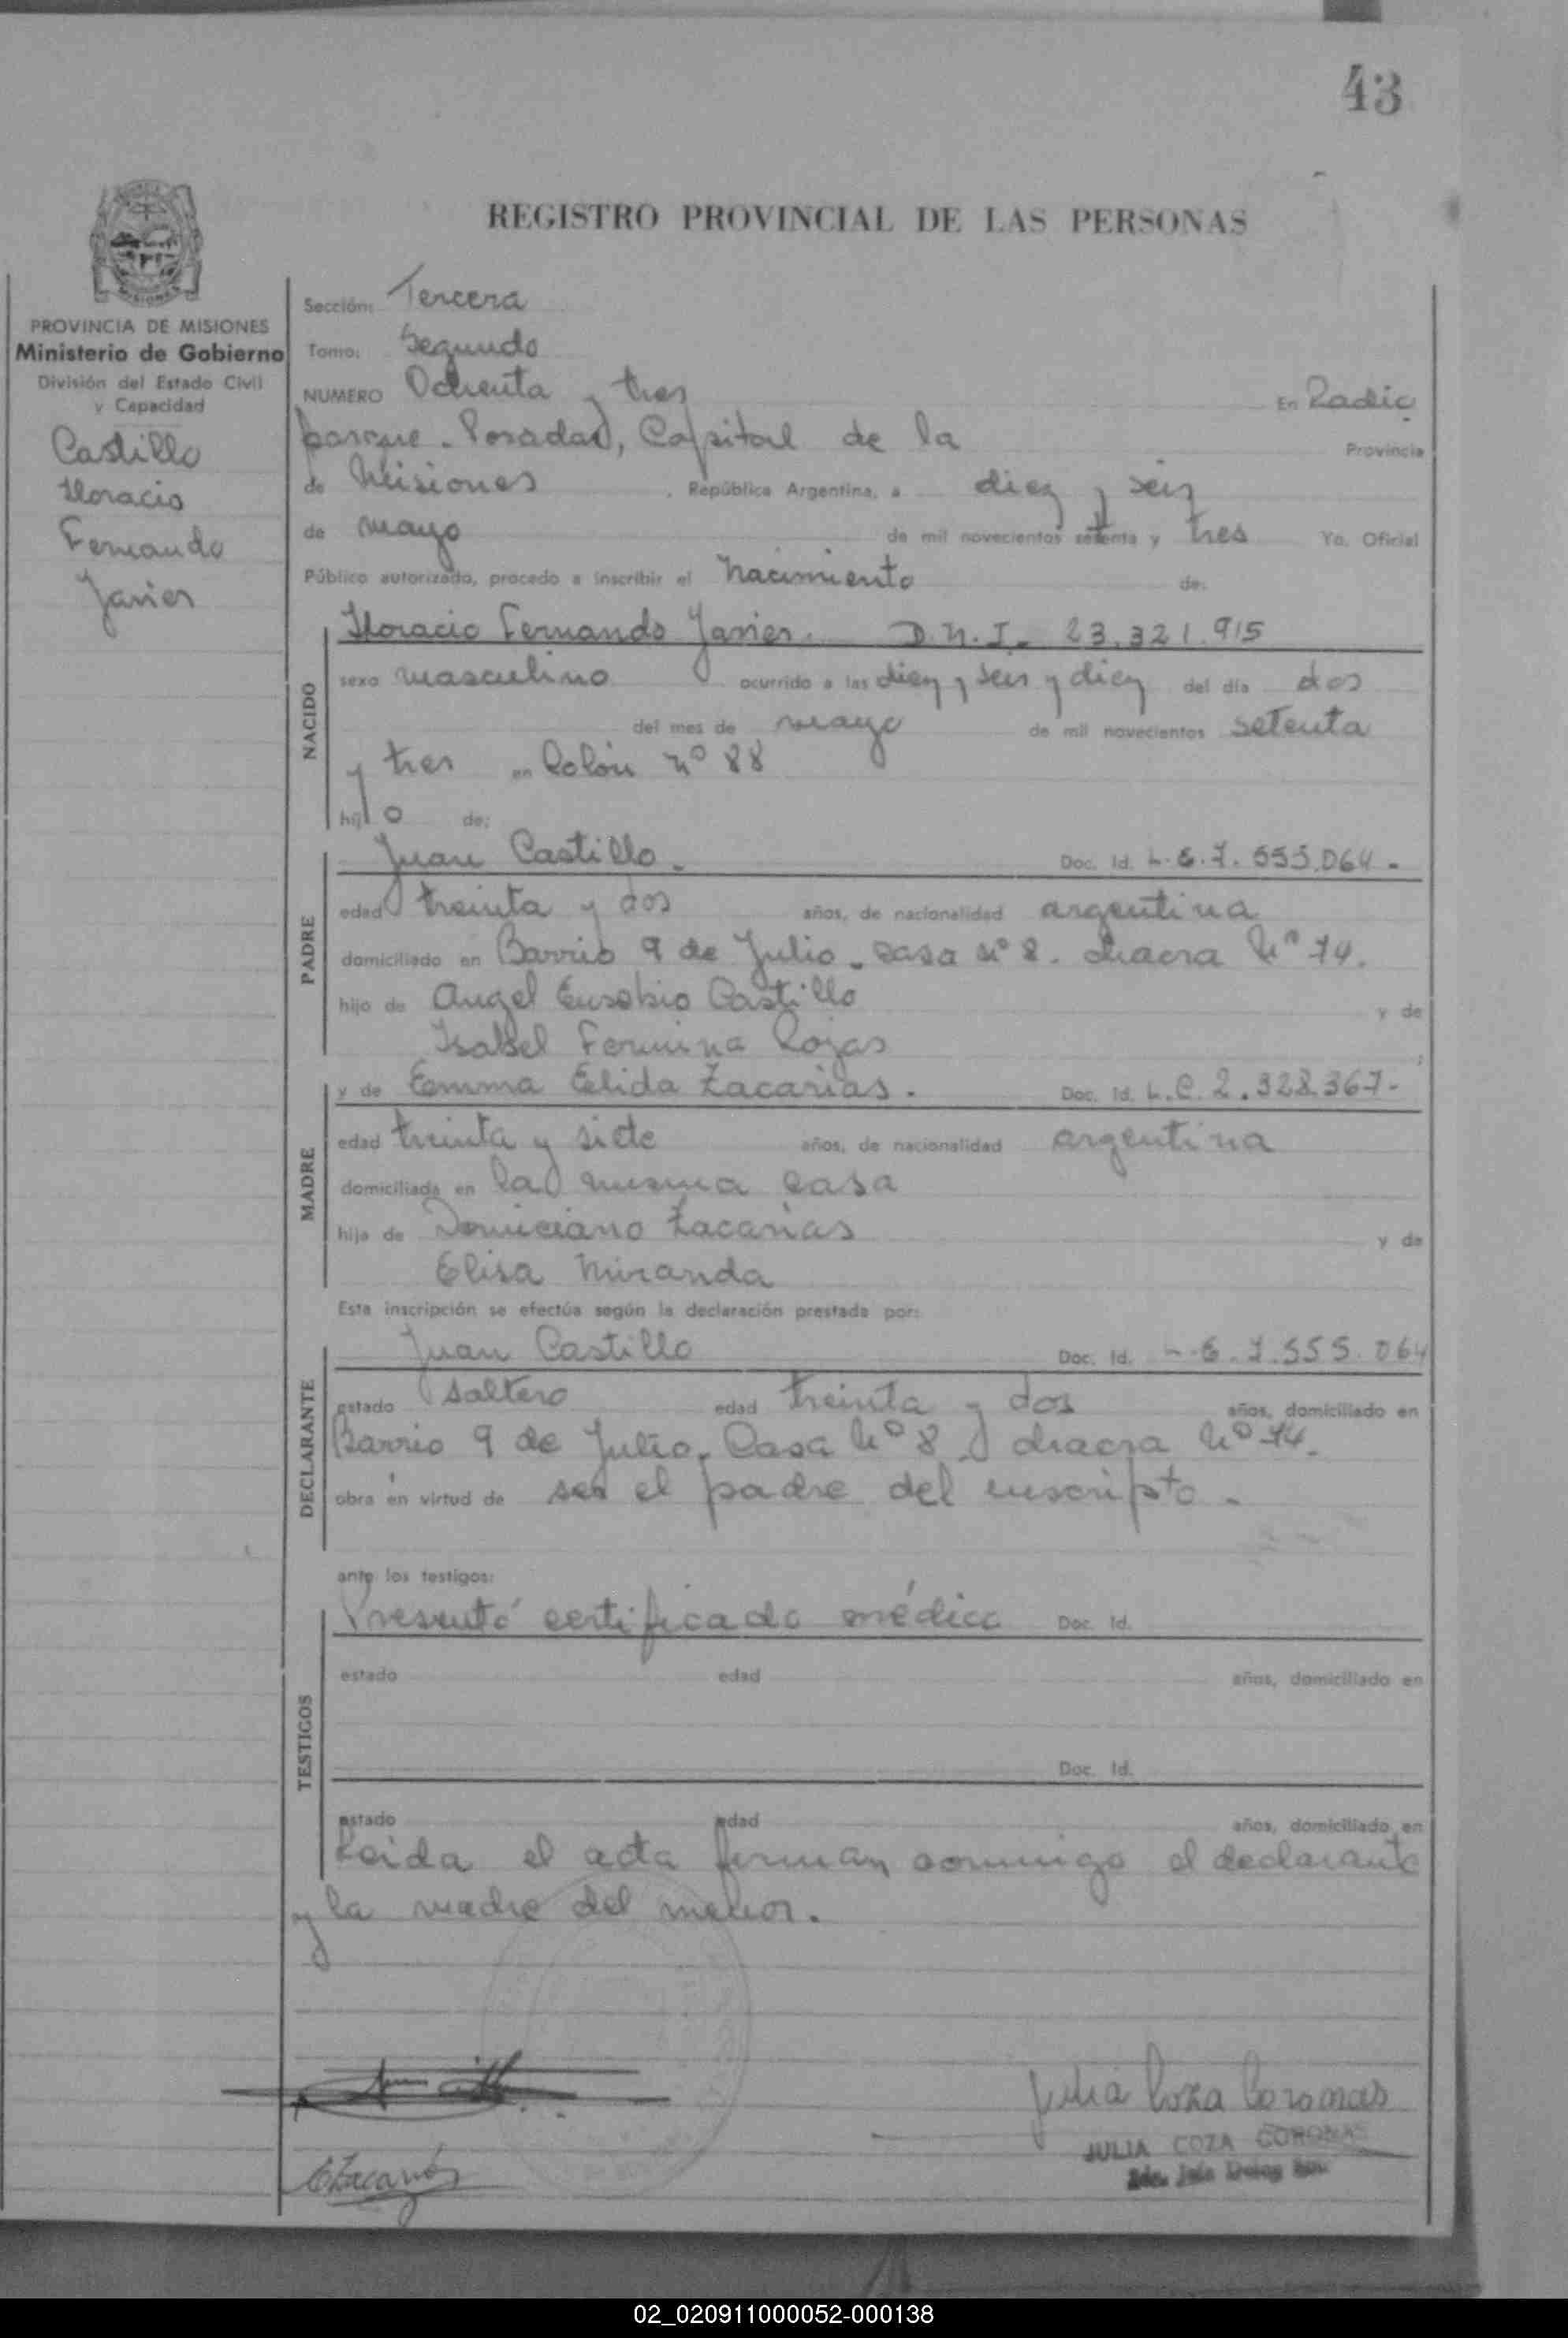 43
REGISTRO PROVINCIAL DE LAS PERSONAS
PROVINCIA DE MISIONES
Ministerio de Gobierno
División del Estado Civil
y Capacidad
Castillo
Horacio
Fernando
Javier
Sección: Tercera
Tomo: Segundo
NUMERO Ochenta y tres En Radio
parque - Posadas, Capital de la Provincia
de Misiones, República Argentina, a diez y seis
de mayo de mil novecientos setenta y tres Yo, Oficial
Público autorizado, procedo a inscribir el nacimiento de:
NACIDO
Horacio Fernando Javier. D.N.I. 23.321.915
sexo masculino ocurrido a las diez y seis y diez del día dos
del mes de mayo de mil novecientos setenta
y tres en Colón nº 88
hijo de:
PADRE
Juan Castillo. Doc. Id. L.E.7.555.064-
edad treinta y dos años, de nacionalidad argentina
domiciliado en Barrio 9 de Julio - casa nº 8. chacra Nº 74.
hijo de Angel Eusebio Castillo y de
Isabel Fermina Rojas
MADRE
y de Emma Elida Zacarias. Doc. Id. L.C. 2.328.367-
edad treinta y siete años, de nacionalidad argentina
domiciliada en la misma casa
hija de Domiciano Zacarias y de
Elisa Miranda
Esta inscripción se efectúa según la declaración prestada por:
DECLARANTE
Juan Castillo Doc. Id. L.E.7.555.064
estado soltero edad treinta y dos años, domiciliado en
Barrio 9 de Julio. Casa Nº 8. chacra Nº 74.
obra en virtud de ser el padre del inscripto.
ante los testigos:
TESTIGOS
Presentó certificado médico Doc. Id.
estado edad años, domiciliado en
Doc. Id.
estado edad años, domiciliado en
Leida el acta firman conmigo el declarante
y la madre del menor.
Julia Coza Coronas
EZacarías
JULIA COZA CORONAS
02_020911000052-000138